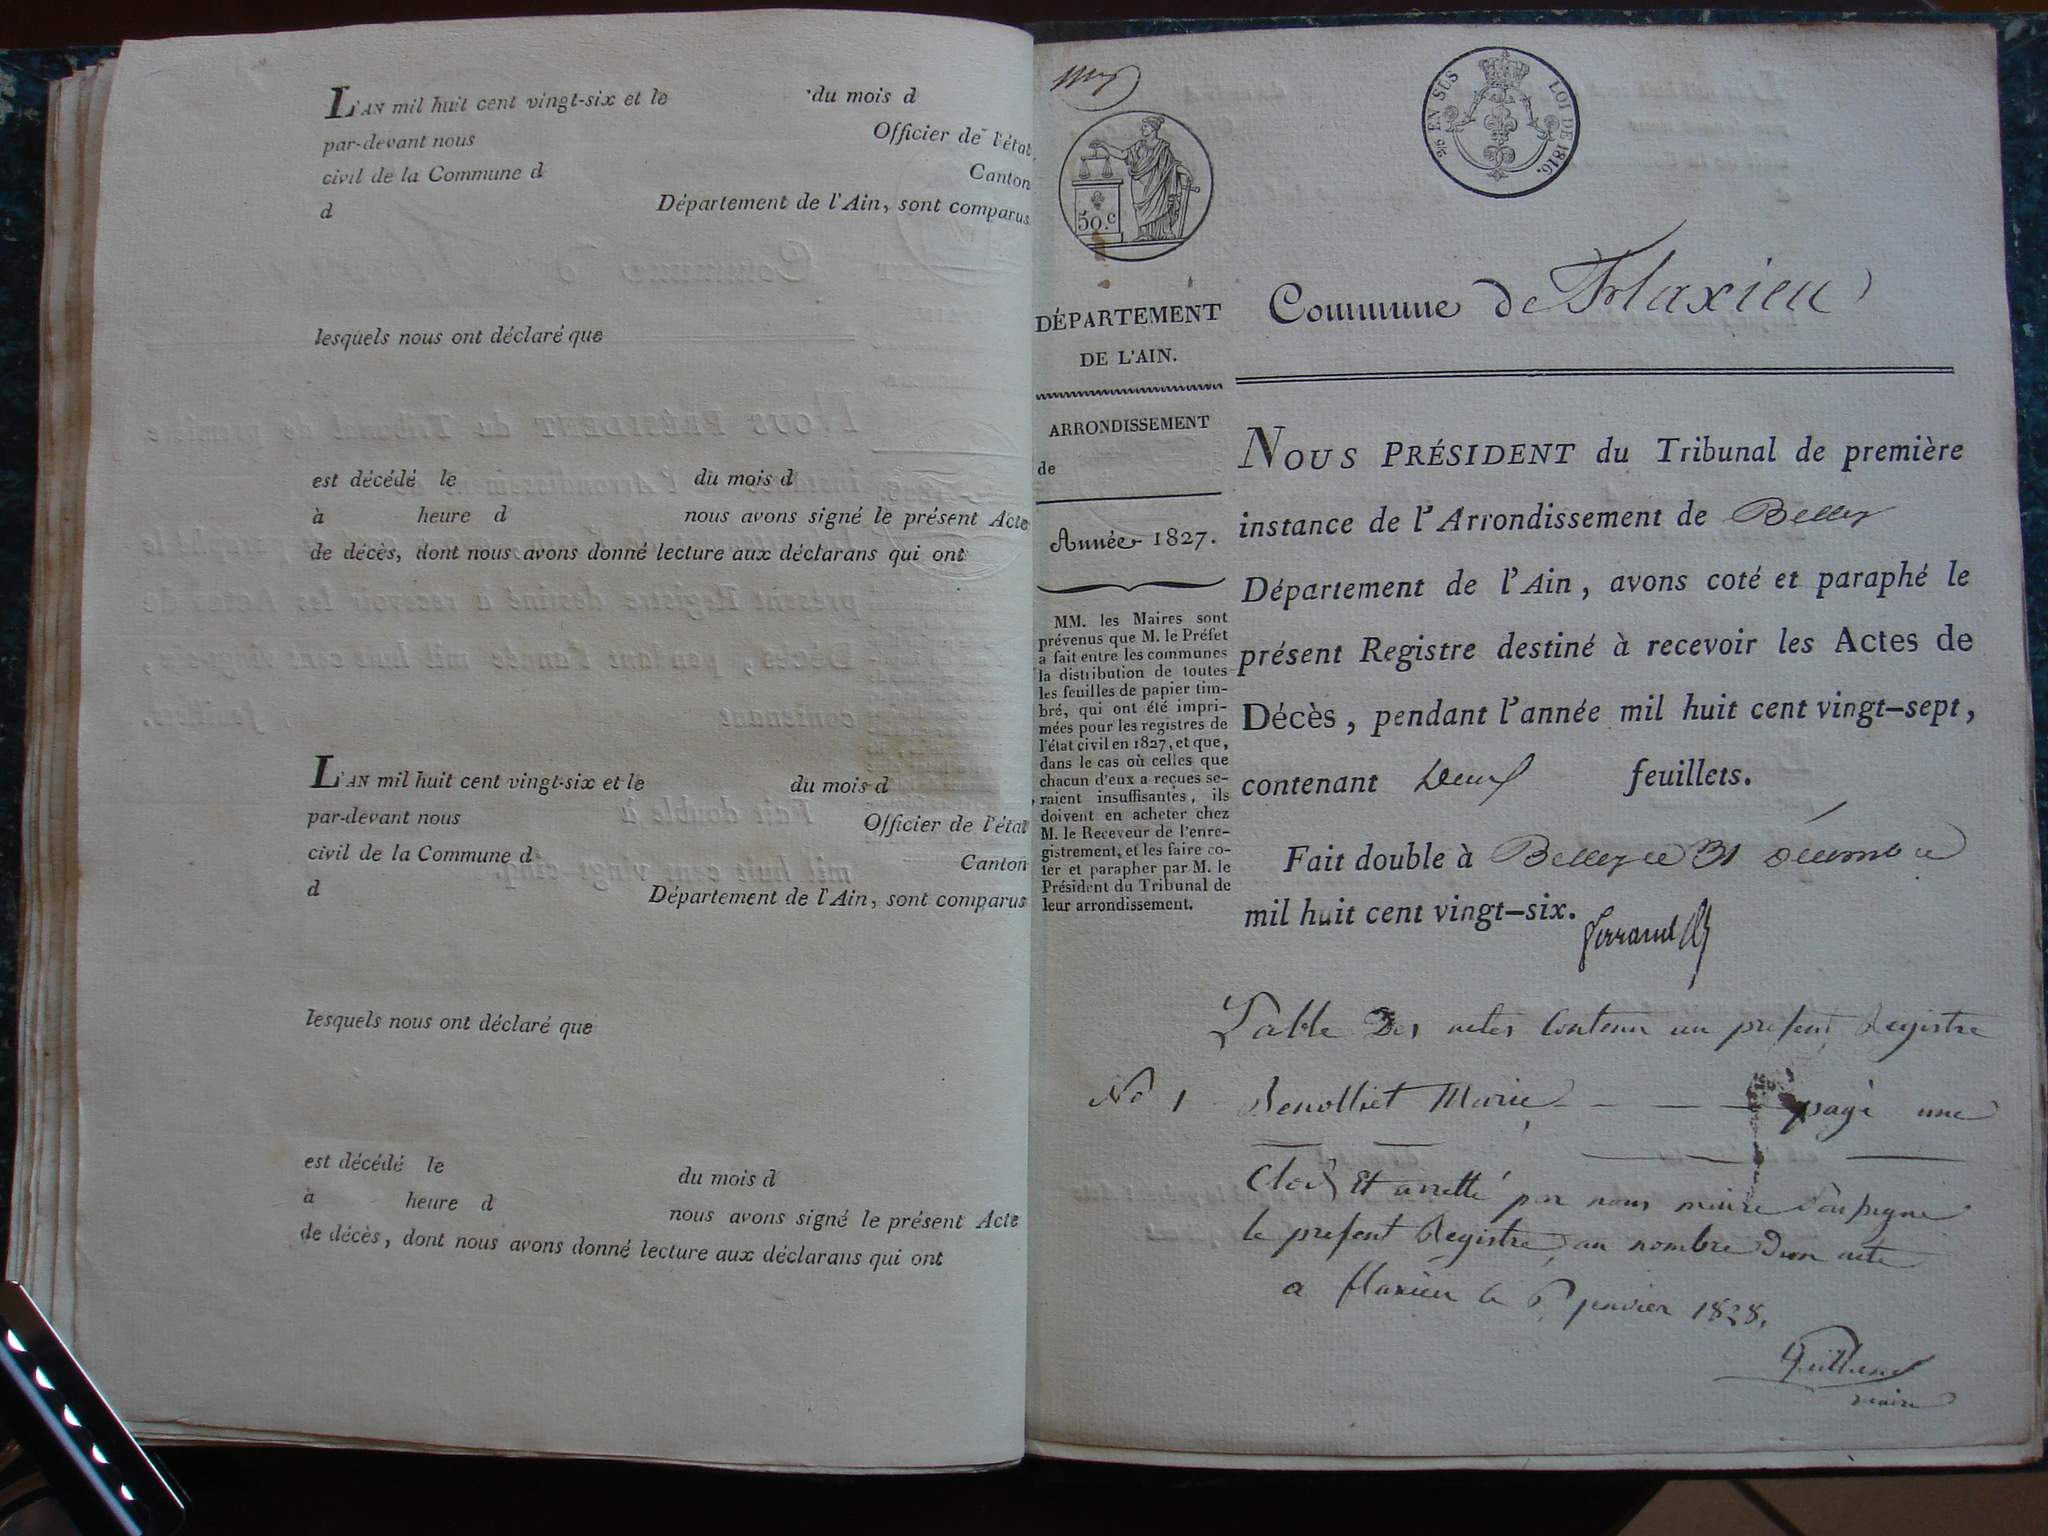 L'AN mil huit cent vingt-six et le du mois d
par-devant nous Officier de l'état
civil de la Commune d Canton
d Département de l'Ain, sont comparus
lesquels nous ont déclaré que
est décédé le du mois d
à heure d nous avons signé le présent Acte
de décès, dont nous avons donné lecture aux déclarans qui ont
L'AN mil huit cent vingt-six et le du mois d
par-devant nous Officier de l'état
civil de la Commune d Canton
d Département de l'Ain, sont comparus
lesquels nous ont déclaré que
est décédé le du mois d
à heure d nous avons signé le présent Acte
de décès, dont nous avons donné lecture aux déclarans qui ont
50.c
EN SUS LOI DE 1816.
DÉPARTEMENT
DE L'AIN.
ARRONDISSEMENT
de
Année 1827.
MM. les Maires sont
prévenus que M. le Préfet
a fait entre les communes
la distribution de toutes
les feuilles de papier tim-
bré, qui ont été impri-
mées pour les registres de
l'état civil en 1827, et que,
dans le cas où celles que
chacun d'eux a reçues se-
raient insuffisantes, ils
doivent en acheter chez
M. le Receveur de l'enre-
gistrement, et les faire co-
ter et parapher par M. le
Président du Tribunal de
leur arrondissement.
Commune de Flaxieu
NOUS PRÉSIDENT du Tribunal de première
instance de l'Arrondissement de Belley
Département de l'Ain, avons coté et paraphé le
présent Registre destiné à recevoir les Actes de
Décès, pendant l'année mil huit cent vingt-sept,
contenant Deux feuillets.
Fait double à Belley ce 31 décembre
mil huit cent vingt-six.
Table Des actes Contenu au present Registre
No 1 Benolliet Marie page une
Clos Et arretté par nous maire Soussigne
le present Registre au nombre d'un acte
a flaxieu le 6 janvier 1828.
maire